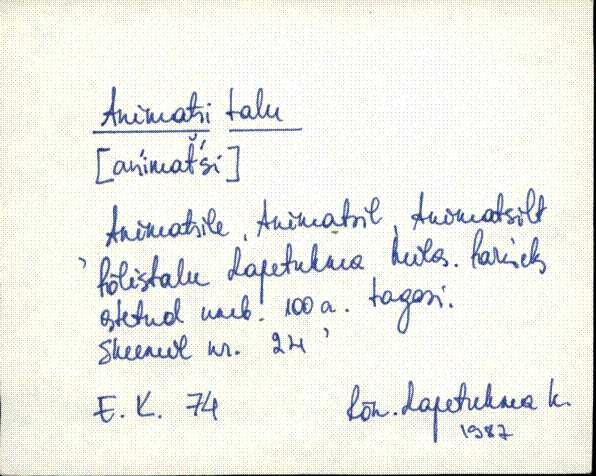 Animatsi talu
[ańimat̆śi]
Animatsile, Animatsil, Animatsilt
'Põlistalu Lapetukma külas. Päriseks
ostetud umb. 100 a. tagasi.
Skeemil nr. 24'
E. K. 74
Rõn. Lapetukma k.
1987